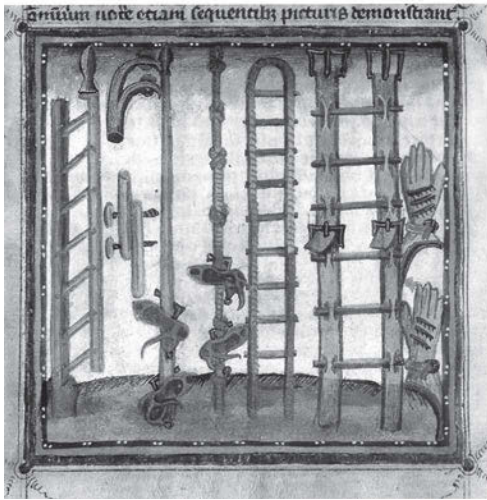 omnium note etiam sequentibꝫ picturis demonstrant᷑